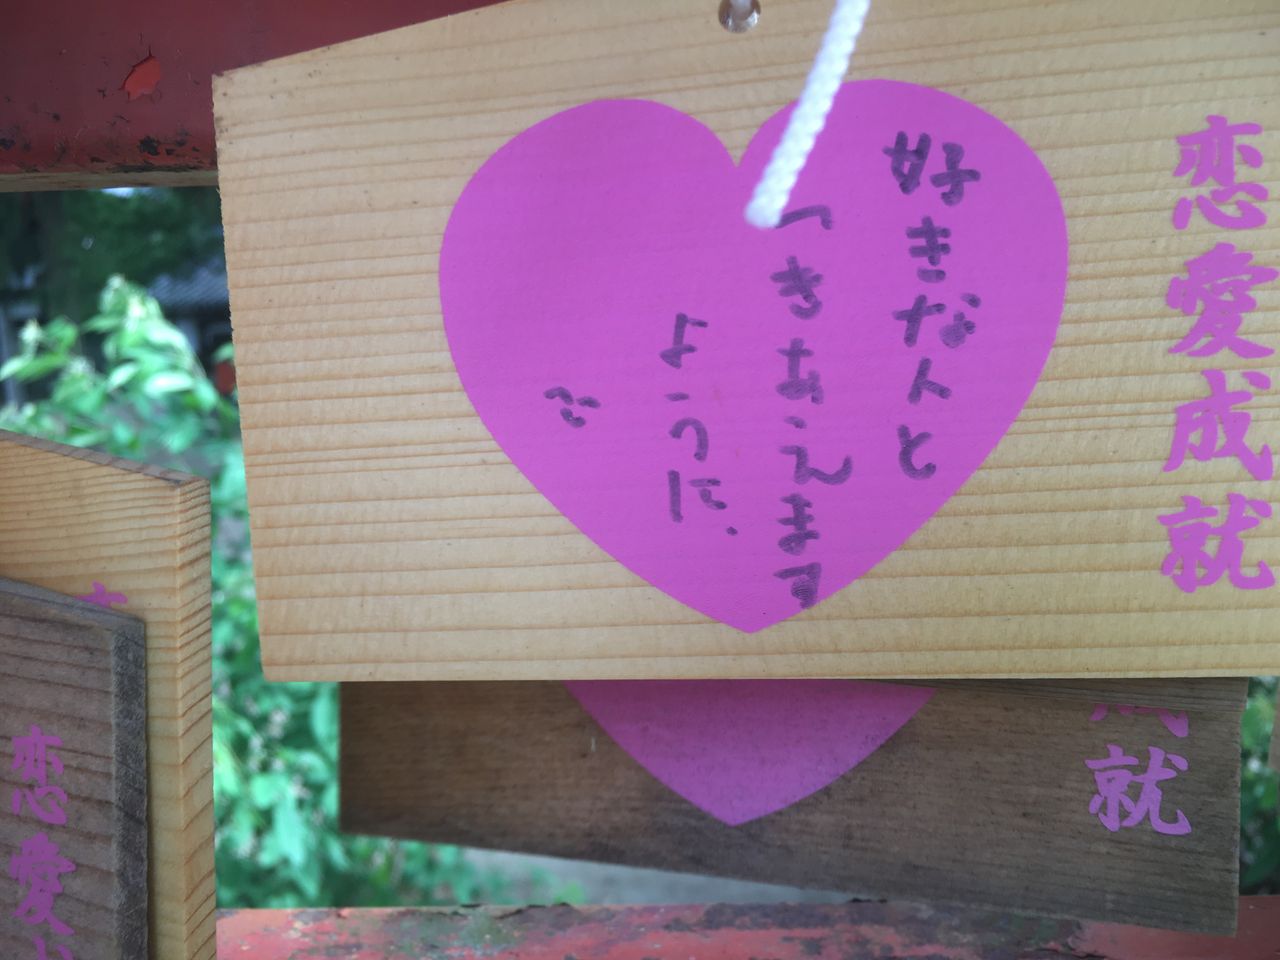 恋愛成就
好きな人と
つきあえます
ように.
就
恋愛